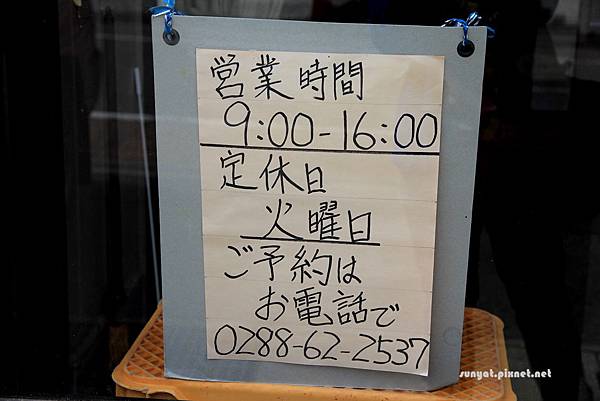 営業時間
9:00-16:00
定休日
火曜日
ご予約は
お電話で
0288-62-2537
sunyat.pixnet.net